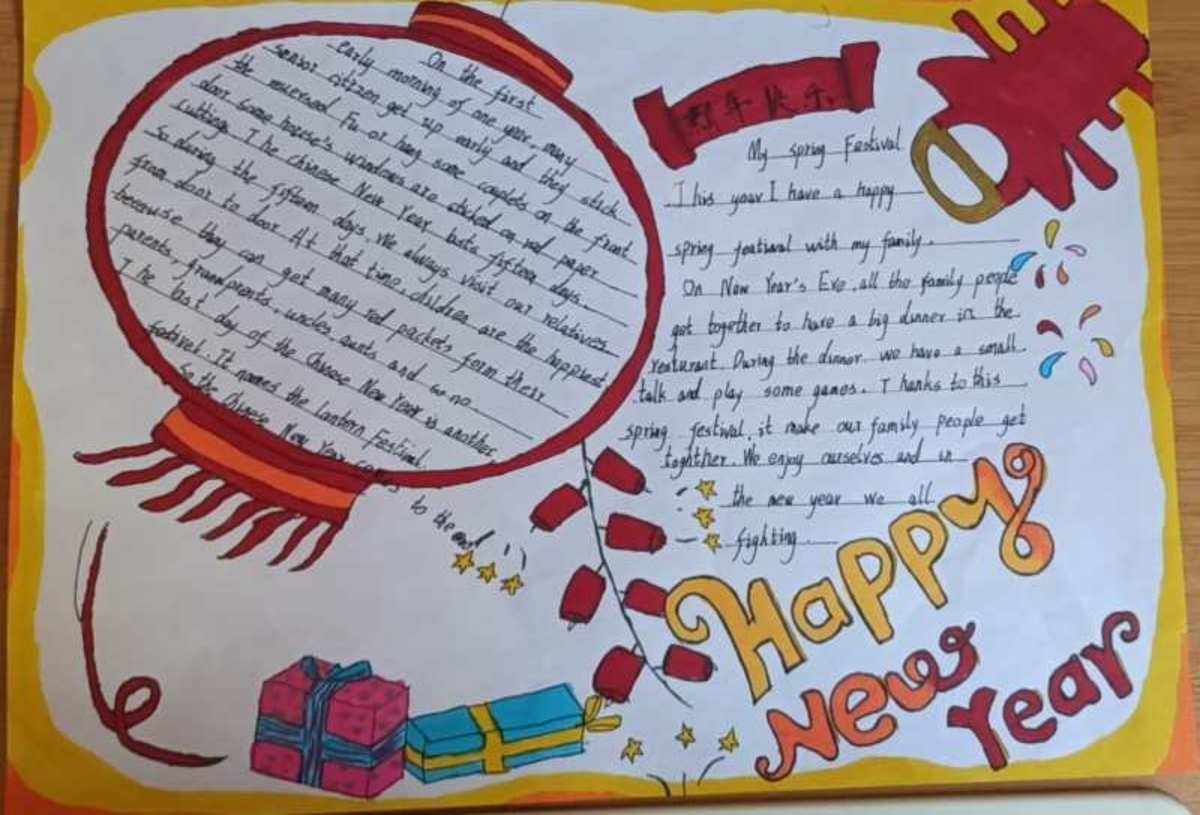 On the first
early morning of one year, many
senior citizen get up marly and they stick
the inversod Fu or hang some couplets on the front
door. Some house's windows are sticked on red paper
cutting. The chinese New Year lasts fifteen days.
So during the fifteen days. We always visit our relatives
from door to door. At that time, children are the happiest
because they can get many red packets form their
parents, grandparents, uncles, aunts and so no
The last day of the Chinese New Year is another
festival. It names the lantern Festival.
So the Chinese New Year comes to the end.
新年快乐
My spring Festival
This year I have a happy
spring festival with my family.
On New Year's Eve, all the family people
get together to have a big dinner in the
resturant. During the dinner. we have a small
talk and play some games. Thanks to this
spring festival, it make our family people get
together. We enjoy ourselves and in
the new year we all
fighting.
Happy
New
Year